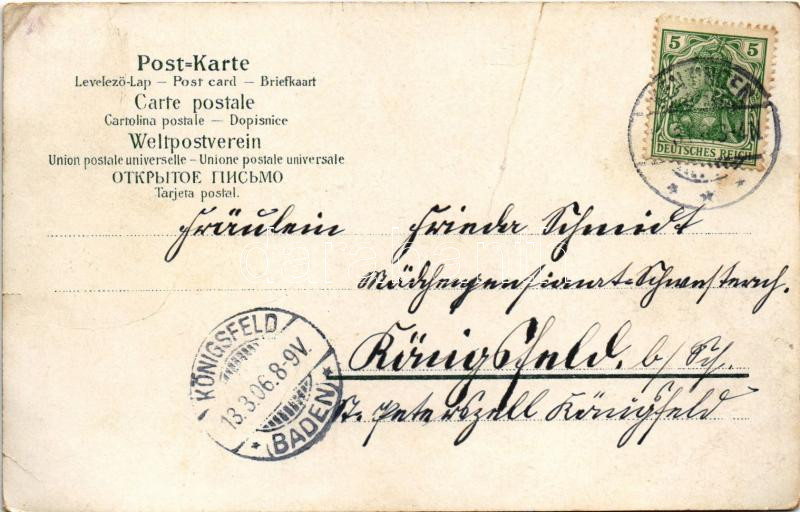 Post=Karte
Levelező-Lap — Post card — Briefkaart
Carte postale
Cartolina postale — Dopisnice
Weltpostverein
Union postale universelle - Unione postale universale
ОТКРЫТОЕ ПИСЬМО
Tarjeta postal.
5 5
DEUTSCHES REICH
Fräulein Frieda Schmidt
Mädchenpensionat-Schwesternh.
Königsfeld. b/Sch.
St. Peterszell Königsfeld
KÖNIGSFELD
13.3.06.8-9V.
* (BADEN) *